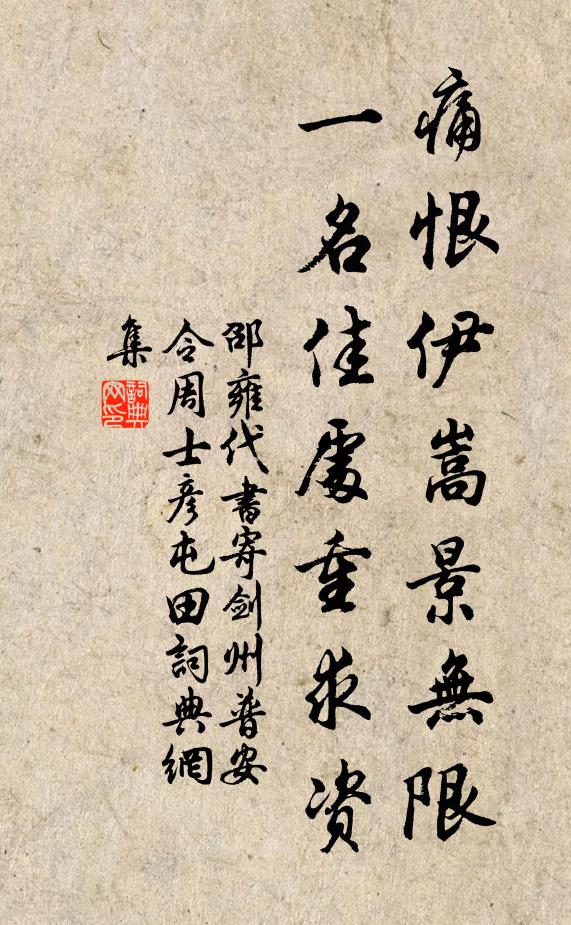 痛恨伊嵩景無限
一名佳處重求資
邵雍代書寄劍州普安
令周士彦屯田詞典網
集
詞典網印